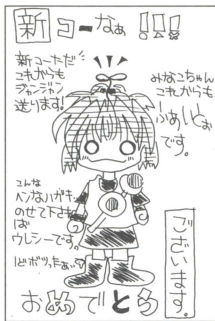 新コーなぁ!!!
新コーただ
これからも
ジャンジャン
送ります!
みなこちゃん
これからも
ふぁいとぉ
です。
こんな
ヘンなハガキ
のせて下され
ば
ウレシーです。
おめでとう
ございます。